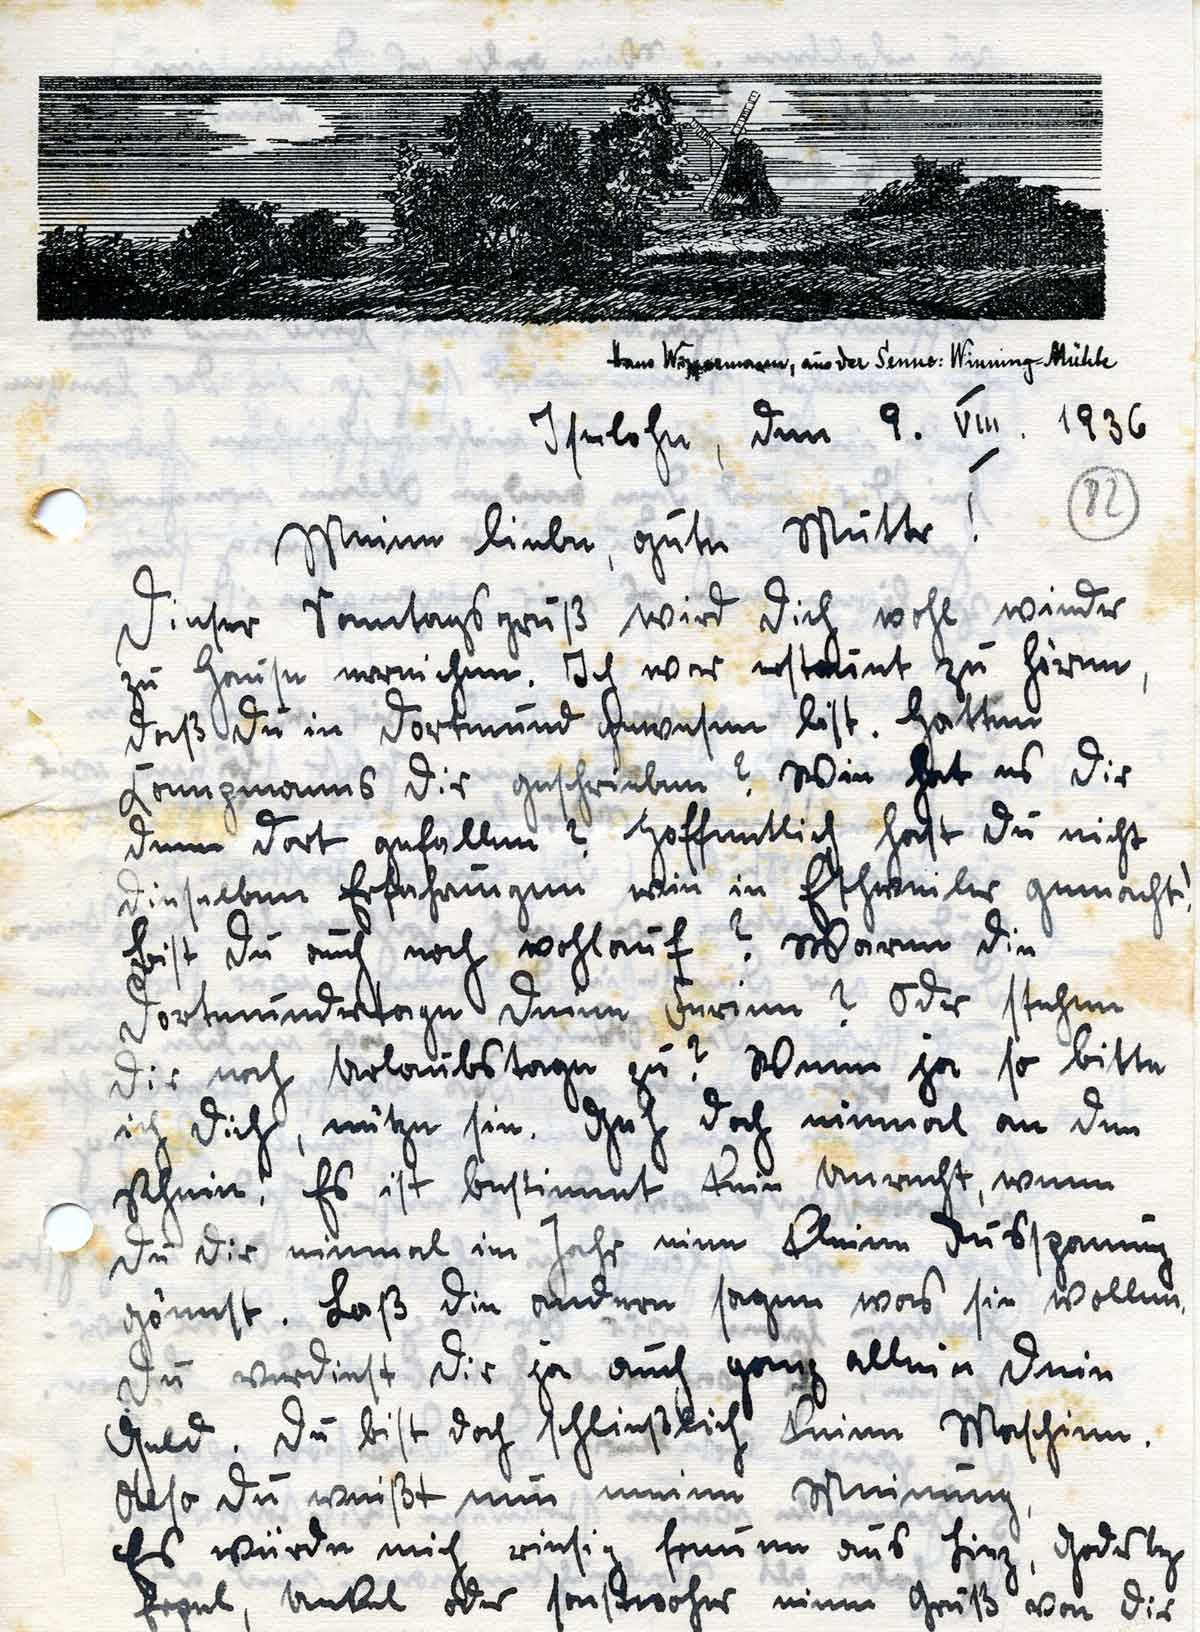 Hans Wippermann, aus der Senne: Winning-Mühle
Iserlohn, den 9. VIII. 1936
82
Meine liebe, gute Mutter!
Dieser Sonntagsgruß wird Dich wohl wieder
zu Hause erreichen. Ich war erstaunt zu hören,
daß Du in Dortmund gewesen bist. Hatten
Dir geschrieben? Wie hat es Dir
denn dort gefallen? Hoffentlich hast Du nicht
dieselben Erfahrungen wie in Eschweiler gemacht!
Bist Du auch noch wohlauf? Waren die
Dortmundertage Deine Ferien? Oder stehen
Dir noch Urlaubstage zu? Wenn ja so bitte
ich Dich, nütze sie. Geh doch einmal an den
Rhein! Es ist bestimmt kein Unrecht, wenn
Du Dir einmal im Jahr eine kleine Ausspannung
gönnst. Laß die andern sagen was sie wollen.
Du verdienst Dir ja auch ganz allein Dein
Geld. Du bist doch schließlich keine Maschine.
Also Du weißt nun meine Meinung,
Es würde mich riesig freuen aus Linz, Godesbg
Erpel, Unkel oder sonstwoher einen Gruß von Dir